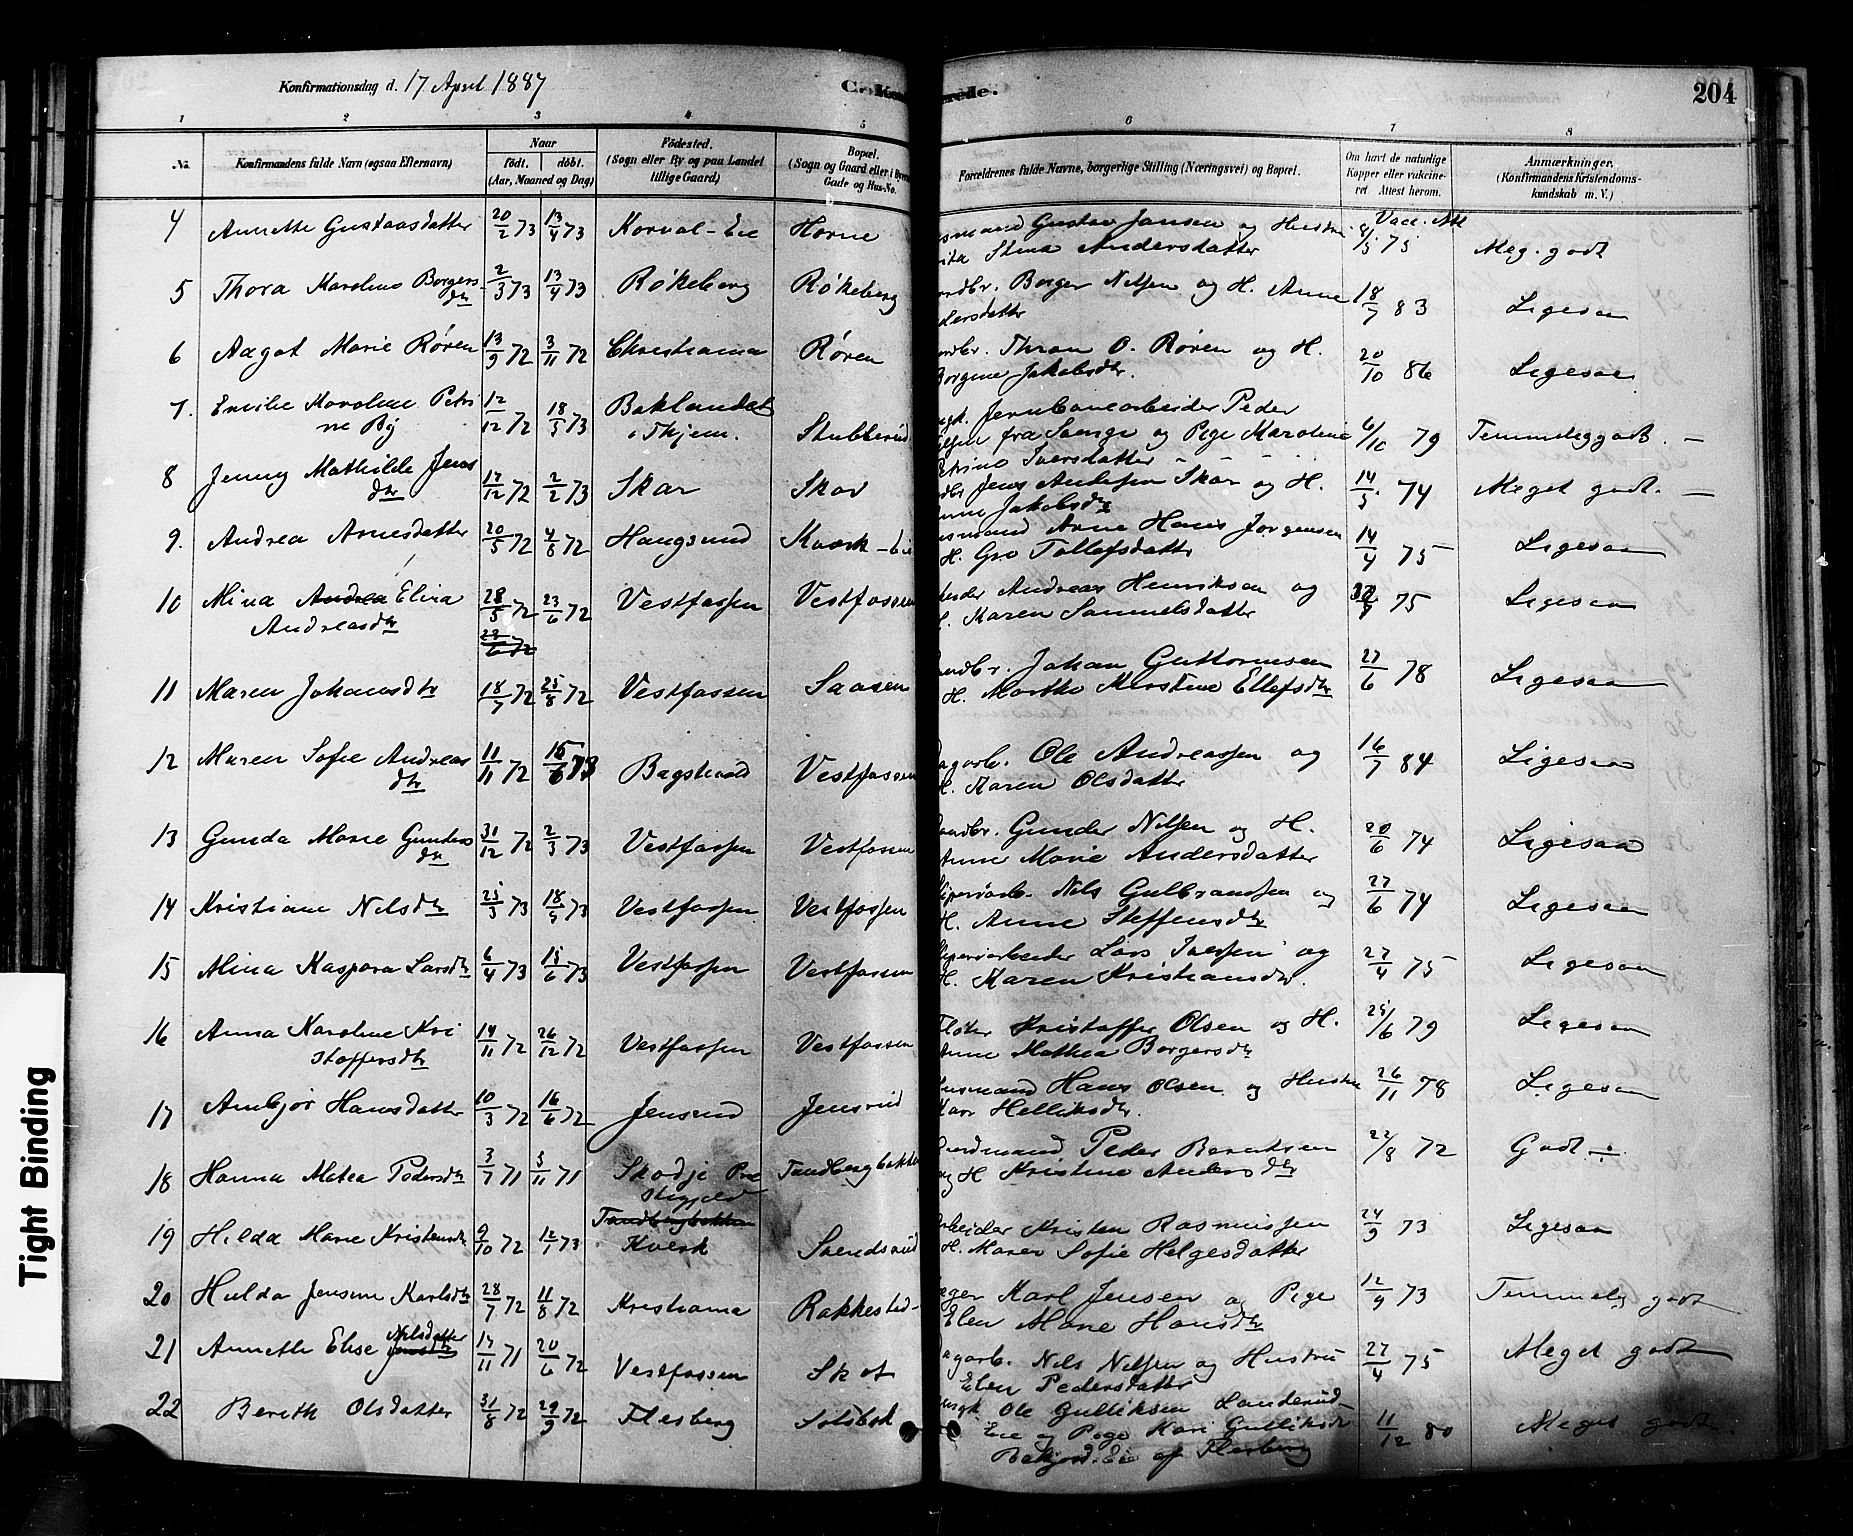 Konfirmationsdag d. 17 April 1887
204
1 2 3 4 5 6 7 8
No. Konfirmandens fulde Navn (ogsaa Efternavn) Naar födt. döbt. (Aar, Maaned og Dag) Födested. (Sogn eller By og paa Landet tillige Gaard) Bopæl. (Sogn og Gaard eller i Byerne Gade og Hus-No. Forældrenes fulde Navne, borgerlige Stilling (Næringsvei) og Bopæl. Om havt de naturlige Kopper eller vakcineret Attest herom. Anmærkninger. (Konfirmandens Kristendomskundskab m. V.)
4 Annette Gustavsdatter 20/2 73 13/4 73 Korval-Eie Horne Gustav Jansen og Hustru Stina Andersdatter Vacc. Att 8/5 75 Meg. godt
5 Thora Karoline Borgersdtr 2/3 73 13/4 73 Røkeberg Røkeberg Borger Nilsen og H. Anne 18/7 83 Ligesaa
6 Aagot Marie Røren 13/9 72 3/11 72 Christiania Røren Thron O. Røren og H. Borgine Jakobsdtr. 20/10 86 Ligesaa
7. Emilie Karoline Petrine By 12/12 72 18/5 73 Baklandet i Thjem. Stubberud Jernbanearbeider Peder fra Svenge og Pige Karoline Iversdatter 6/10 79 Temmelig godt. —
8 Jenny Mathilde Jensdtr 17/12 72 2/2 73 Skar Skar Jens Andersen Skar og H. Jakobsdtr 14/5 74 Meget godt. —
9. Andrea Arnesdatter 20/5 72 4/8 72 Haugsund Kværk-Eie Arne Hans Jørgensen H. Gro Tollefsdatter 14/4 75 Ligesaa
10 Mina Andrea Elisa Andreasdtr 28/5 72 23/6 72 23/6 72 Vestfossen Vestfossen Andreas Henriksen og Karen Samuelsdatter 75 Ligesaa
11 Maren Johansdtr 18/7 72 25/8 72 Vestfossen Saasen Johan Guttormsen H. Marthe Kirstine Ellefsdtr 27/6 78 Ligesaa
12 Maren Sofie Andreasdtr 11/11 72 15/6 73 Bagstevold Vestfossen Ole Andreassen og H. Karen Olsdatter 16/7 84 Ligesaa
13 Gunda Marie Gundersdtr 31/12 72 2/3 73 Vestfossen Vestfossen Gunder Nilsen og H. Anne Marie Andersdatter 20/6 74 Ligesaa
14 Kristiane Nilsdtr 25/3 73 18/5 73 Vestfossen Vestfossen Nils Gulbransen og H. Anne Steffensdtr 27/6 74 Ligesaa
15 Mina Kaspara Larsdtr 6/4 73 15/6 73 Vestfossen Vestfossen Lars Iversen og H. Karen Kristiansdtr. 27/4 75 Ligesaa
16 Anna Karoline Kristoffersdtr 14/11 72 26/12 72 Vestfossen Vestfossen Kristoffer Olsen og H. Anne Mathea Borgersdtr 25/6 79 Ligesaa
17 Anbjør Hansdatter 10/3 72 16/6 72 Jensrud Jensrud Husmand Hans Olsen og Hustru Kari Helliksdtr. 26/11 78 Ligesaa
18 Hanna Matea Pedersdtr 3/7 71 5/11 71 Skodje Prestegjeld Tandbergbakken Peder Berntsen og H. Kristine Andersdtr 22/8 72 Godt ÷
19 Hilda Marie Kristensdtr 9/10 72 12/1 73 Tandbergbakken Kværk Svendsrud Arbeider Kristen Rasmussen H. Maren Sofie Helgesdatter 24/9 73 Ligesaa
20 Hulda Jensine Karlsdtr 28/7 72 11/8 72 Kristiania Rakkestad- Karl Jensen og Pige Elen Marie Hansdtr 12/9 73 Temmelig godt
21 Annette Elise Nilsdatter Jensdtr 17/11 71 20/6 72 Vestfossen Skot Nils Nilsen og Hustru Elen Pedersdatter 27/4 75 Meget godt
22 Bereth Olsdatter 31/8 72 29/9 72 Flesberg Solsbok Ole Gulliksen Landerud-Eie og Pige Kari Gulliksdtr Bakjord-Eie af Flesberg 11/12 80 Meget godt.
Tight Binding